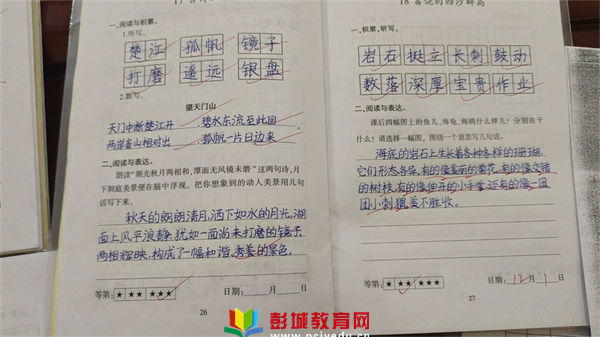 一、阅读与积累。
1.听写。
楚江 孤帆 镜子
打磨 遥远 银盘
2.默写。
望天门山
天门中断楚江开 碧水东流至此回
两岸青山相对出 孤帆一片日边来
二、阅读与表达。
朗读“湖光秋月两相和，潭面无风镜未磨”这两句诗，月
下洞庭美景便在脑中浮现。把你想象到的动人美景用几句
话写下来。
秋天的朗朗清月，洒下如水的月光，湖
面上风平浪静，犹如一面尚未打磨的镜子
两相辉映，构成了一幅和谐、秀美的景色。
等第：★ ★★ ★★★
日期： 月 日
26
一、积累，听写。
岩石 挺立 长刺 鼓动
数落 深厚 宝贵 作业
二、阅读与表达。
课后四幅图上的鱼儿、海龟、海鸥什么样儿？分别在干
什么？请选择一幅图，围绕一个意思写几句话。
海底的岩石上生长着各种各样的珊瑚，
它们形态各异，有的像美丽的菊花，有的像交错
的树枝，有的像伸开的小手掌，还有的像一团
团小刺猬，美不胜收。
等第：★ ★★ ★★★
日期：12月1日
27
彭城教育网